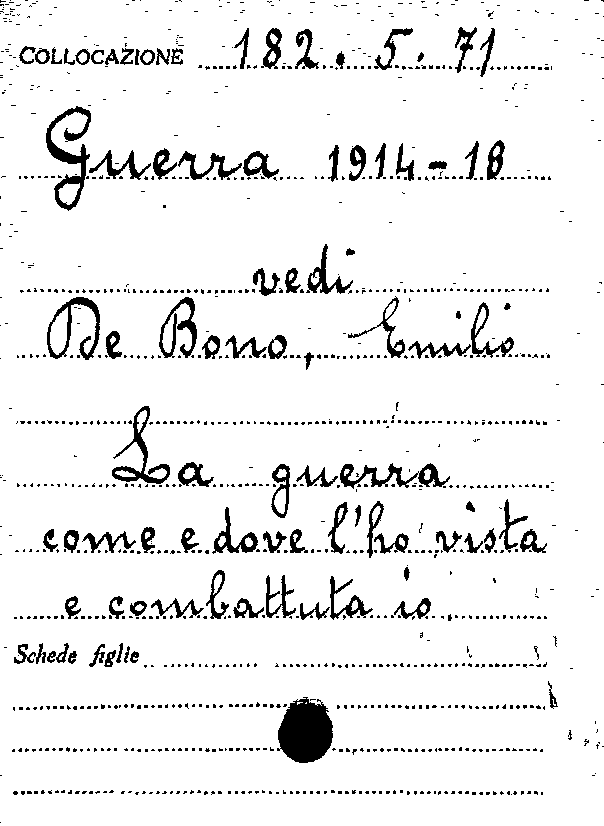 COLLOCAZIONE 182.5.71
Guerra 1914-18
vedi
De Bono, Emilio
La guerra
come e dove l'ho vista
e combattuta io.
Schede figlie